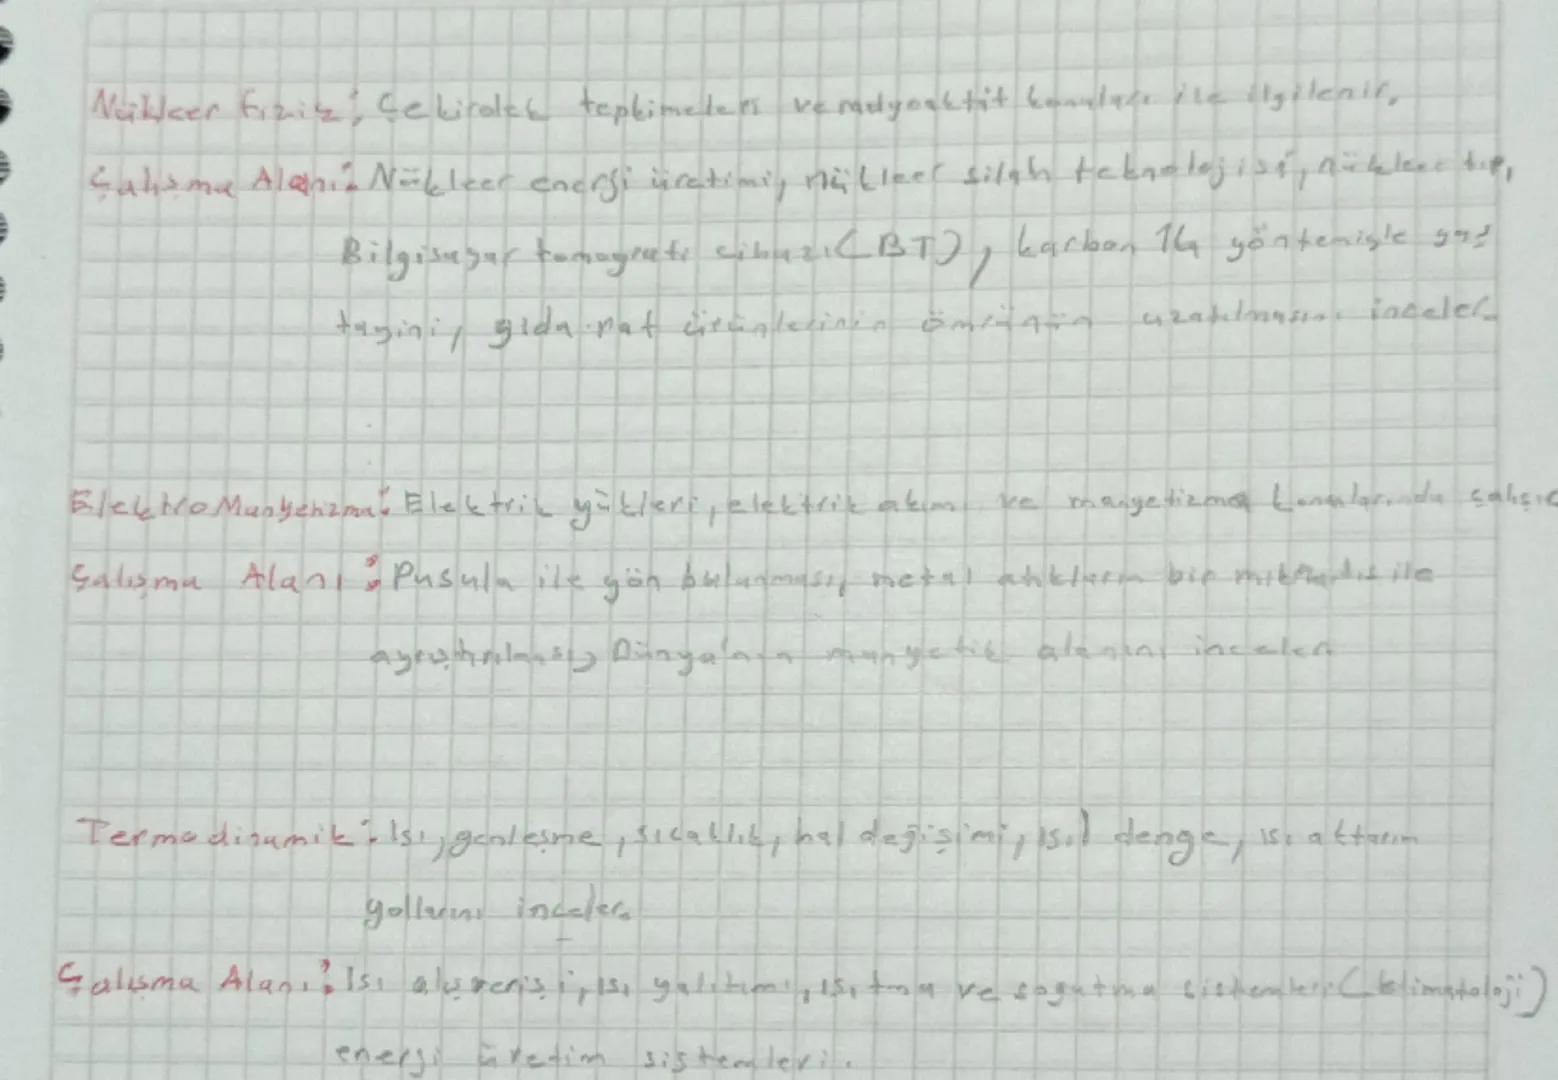 Nükleer Fizik: Çekirdek tepkimeleri ve radyoaktif konuları ile ilgilenir.
Çalışma Alanı: Nükleer enerji üretimi, nükleer silah teknolojisi, nükleer tıp,
Bilgisayar tomografi cihazı (BT), karbon 14 yöntemiyle yaş
tayini, gıda ürünlerinin ömrünün uzatılmasını inceler.
Elektro Manyenizma: Elektrik yükleri, elektrik akım ve manyetizma konularında çalışır
Çalışma Alanı: Pusula ile yön bulunması, metal atıkların bir mıknatıs ile
ayrıştırılması, Dünyanın manyetik alanını inceler
Termodinamik: Isı, genleşme, sıcaklık, hal değişimi, ısıl denge, ısı aktarım
yollarını inceler.
Çalışma Alanı: Isı alışverişi, ısı yalıtımı, ısıtma ve soğutma sistemleri (klimatoloji)
enerji üretim sistemleri.